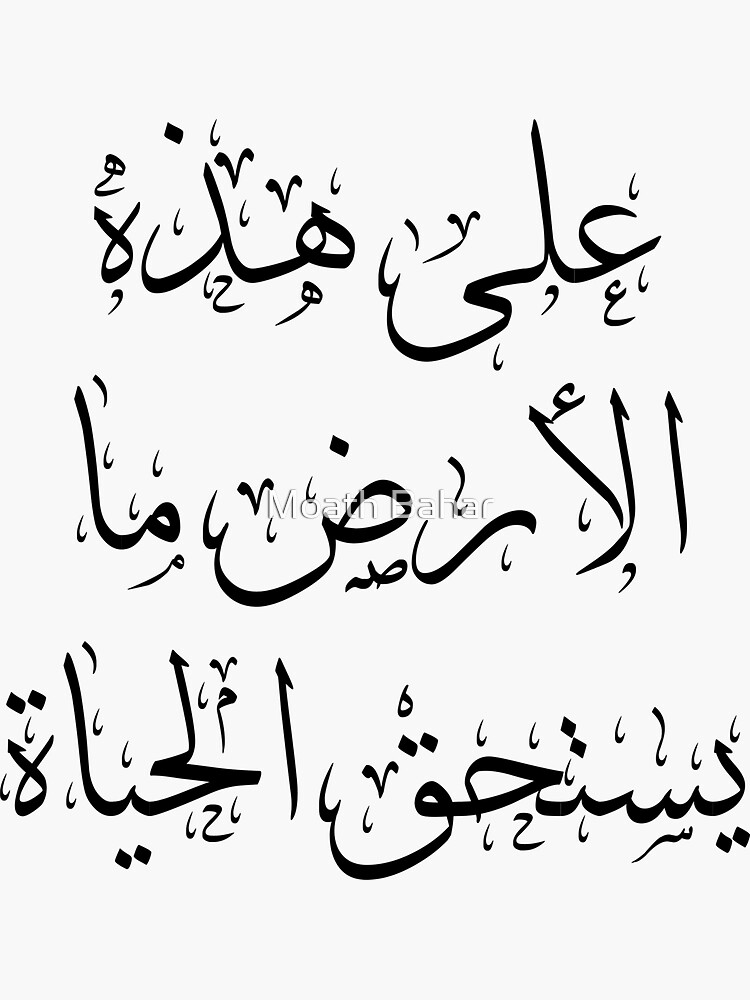 على هذه
الأرض ما
Moath Bahar
يستحق الحياة